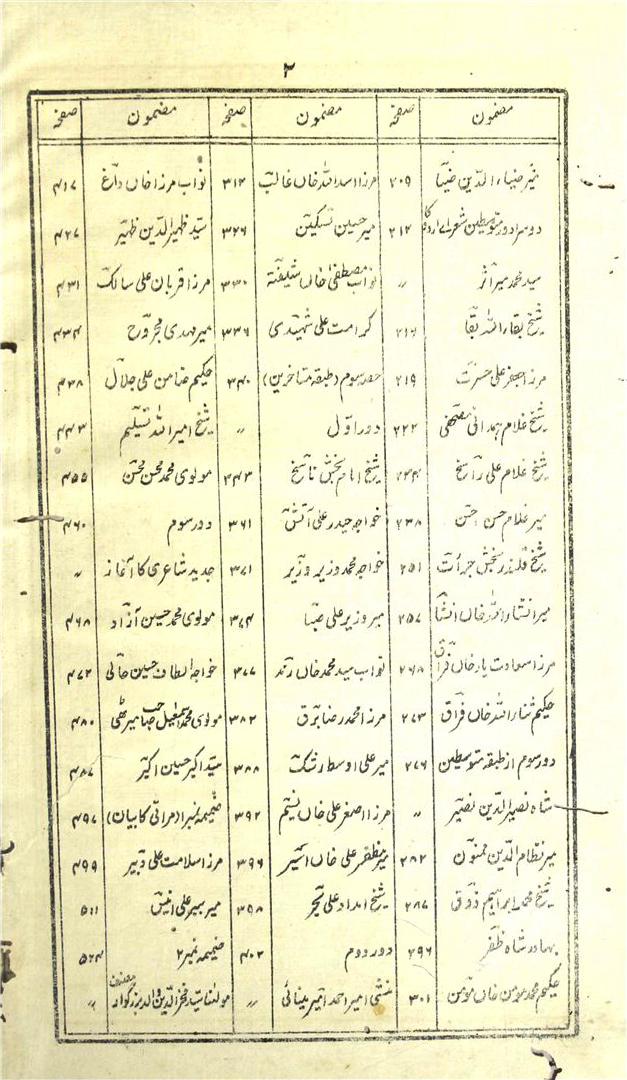 ۲
مضمون صفحہ مضمون صفحہ مضمون صفحہ
میر ضیاء الدین ضیا ۲۰۹ مرزا اسد اللہ خاں غالب ۳۱۴ نواب مرزا خاں داغ ۴۱۷
دوسرا دور متوسطین شعراے اردو کا ۲۱۴ میر حسین تسکین ۳۲۶ سید ظہیر الدین ظہیر ۴۲۷
سید محمد میر اثر ״ نواب مصطفیٰ خاں شیفتہ ۳۳۰ مرزا قربان علی سالک ۴۳۱
شیخ بقاء اللہ بقا ۲۱۶ کرامت علی شہیدی ۳۳۶ میر مہدی مجروح ۴۳۴
مرزا جعفر علی حسرت ۲۱۹ حصہ سوم (طبقہ متاخرین) ۳۴۰ حکیم ضامن علی جلال ۴۳۸
شیخ غلام ہمدانی مصحفی ۲۲۲ دور اوّل ״ شیخ امیر اللہ تسلیم ۴۴۳
شیخ غلام علی راسخ ۲۳۴ شیخ امام بخش ناسخ ۳۴۳ مولوی محمد محسن محسن ۴۵۵
میر غلام حسن حسن ۲۳۸ خواجہ حیدر علی آتش ۳۶۱ دور سوم ۴۶۰
شیخ قلندر بخش جرأت ۲۵۱ خواجہ محمد وزیر وزیر ۳۷۱ جدید شاعری کا آغاز ״
میر انشاء اللہ خاں انشا ۲۵۷ میر وزیر علی صبا ۳۷۴ مولوی محمد حسین آزاد ۴۶۸
مرزا سعادت یار خاں ۲۶۸ نواب سید محمد خاں رند ۳۷۷ خواجہ الطاف حسین حالی ۴۷۲
حکیم ثناء اللہ خاں فراق ۲۷۳ مرزا محمد رضا برق ۳۸۲ مولوی محمد اسمٰعیل صاحب میرٹھی ۴۸۰
دور سوم از طبقہ متوسطین ۲۷۶ میر علی اوسط رشک ۳۸۸ سید اکبر حسین اکبر ۴۸۷
شاہ نصیر الدین نصیر ״ مرزا اصغر علی خاں نسیم ۳۹۲ ضمیمہ نمبر۱ (مراثی کا بیان) ۴۹۷
میر نظام الدین ممنون ۲۸۲ میر مظفر علی خاں اسیر ۳۹۶ مرزا سلامت علی دبیر ۴۹۹
شیخ محمد ابراہیم ذوق ۲۸۷ شیخ امداد علی بحر ۳۹۸ میر ببر علی انیس ۵۱۱
بہادر شاہ ظفر ۲۹۶ دور دوم ۴۰۲ ضمیمہ نمبر ۲ ۵۲۴
حکیم محمد مومن خاں مومن ۳۰۱ منشی امیر احمد امیر مینائی ״ مولٰنا سید فخر الدین والد بزرگوار مصنف ״